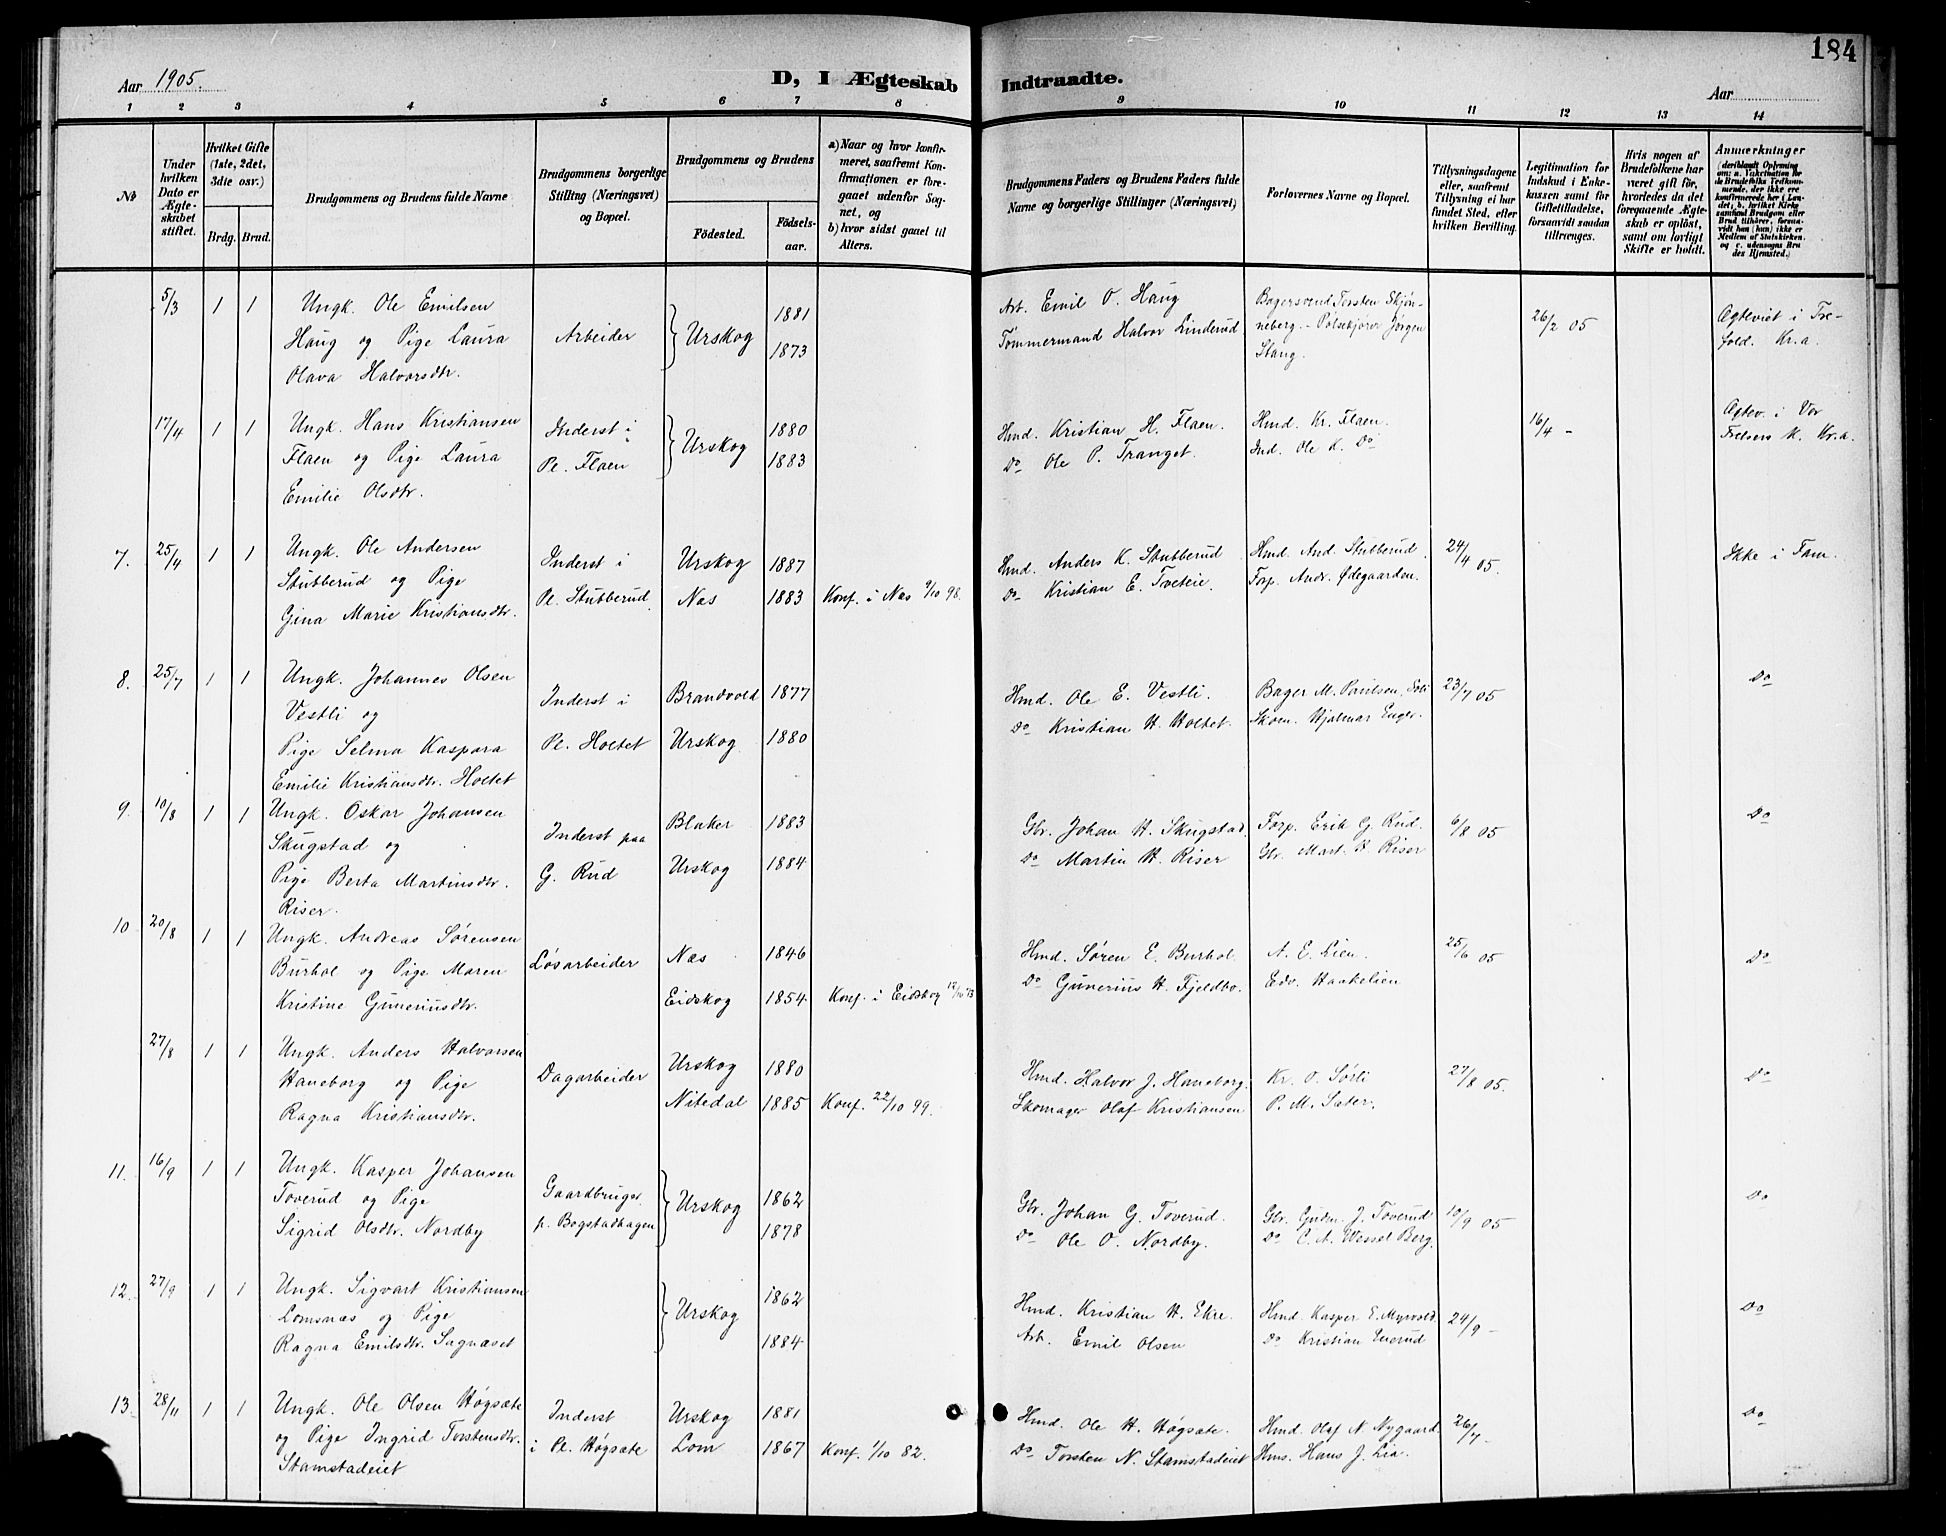 184
Aar 1905.
D, I Ægteskab Indtraadte.
Aar
1 2 3 4 5 6 7 8 9 10 11 12 13 14
No
Under hvilken Dato er Ægteskabet stiftet.
Hvilket Gifte (1ste, 2det, 3die osv.)
Brdg. Brud.
Brudgommens og Brudens fulde Navne
Brudgommens borgerlige Stilling (Næringsvei) og Bopæl.
Brudgommens og Brudens
Födested.
Födselsaar.
a) Naar og hvor konfirmeret, saafremt Konfirmationen er foregaaet udenfor Sognet, og
b) hvor sidst gaaet til Alters.
Brudgommens Faders og Brudens Faders fulde Navne og borgerlige Stillinger (Næringsvei)
Forlovernes Navne og Bopæl.
Tillysningsdagene eller, saafremt Tillysning ei har fundet Sted, efter hvilken Bevilling.
Legitimation for Indskud i Enkekassen samt for Giftetilladelse, forsaavidt saadan tiltrænges.
Hvis nogen af Brudefolkene har været gift för, hvorledes da det foregaaende Ægteskab er oplöst, samt om lovligt Skifte er holdt.
Anmærkninger (deriblandt Oplysning om: a. Vaccination for de Brudefolks Vedkommende, der ikke ere konfirmerede her i Landet; b. hvilket Kirkesamfund Brudgom eller Brud tilhörer, forsaavidt han (hun) ikke er Medlem af Statskirken, og c. udensogns Brudes Hjemsted.)
5/3 1 1 Ungk. Ole Emilsen
Haug og Pige Laura
Olava Halvorsdtr.
Arbeider
Urskog
1881
1873
Arb. Emil O. Haug
Tømmermand Halvor Linderud
Bagersvend Torsten Skjønneberg. - Pølsekjører Jørgen
Stang.
26/2 05
Ægteviet i Trefold. Kr.a.
17/4 1 1 Ungk. Hans Kristiansen
Flaen og Pige Laura
Emilie Olsdtr.
Inderst i
Pl. Flaen
Urskog
1880
1883
Hmd. Kristian H. Flaen.
Do Ole P. Tranget.
Hmd. Kr. Flaen.
Ind. Ole K. Do
16/4 -
Ægtev. i Vor
Frelsers K. Kr.a.
7. 25/4 1 1 Ungk. Ole Andersen
Stubberud og Pige
Gina Marie Kristiansdtr.
Inderst i
Pl. Stubberud.
Urskog 1887
Næs 1883 Konf. i Næs 9/10 98.
Hmd. Anders K. Stubberud
Do Kristian E. Tveteie.
Hmd. And. Stubberud.
Forp. Andr. Ødegaarden.
24/4 05.
Ikke i Fam.
8. 25/7 1 1 Ungk. Johannes Olsen
Vestli og
Pige Selma Kaspara
Emilie Kristiansdtr. Holtet
Inderst i
Pl. Holtet
Brandvold 1877
Urskog 1880
Hmd. Ole E. Vestli.
Do Kristian H. Holtet.
Bager M. Paulsen, Soli
Skom. Hjalmar Enger.
23/7 05
Do
9. 10/8 1 1 Ungk. Oskar Johansen
Skugstad og
Pige Berta Martinsdtr.
Riser.
Inderst paa
G. Rud
Blaker 1883
Urskog 1884
Gbr. Johan H. Skugstad.
Do Martin H. Riser
Forp. Erik G. Rud.
Gbr. Mart. H. Riser
6/8 05
Do
10 20/8 1 1 Ungk. Andreas Sørensen
Burhol og Pige Maren
Kristine Guneriusdtr.
Løsarbeider
Næs 1846
Eidskog 1854 Konf. i Eidskog 12/10 73
Hmd. Søren E. Burhol.
Do Gunerius H. Fjeldbo.
A. E. Lien.
Edv. Haakelien
25/6 05
Do
27/8 1 1 Ungk. Anders Halvorsen
Haneborg og Pige
Ragna Kristiansdtr.
Dagarbeider
Urskog 1880
Nitedal 1885 Konf. 22/10 99.
Hmd. Halvor J. Haneborg.
Skomager Olaf Kristiansen
Kr. O. Sørli
P. M. Sæter.
27/8 05.
Do
11. 16/9 1 1 Ungk. Kasper Johansen
Toverud og Pige
Sigrid Olsdtr. Nordby
Gaardbruger
p. Bogstadhagen
Urskog
1862
1878
Gbr. Johan G. Toverud.
Do Ole O. Nordby.
Gbr. Gudm. J. Toverud
Do C. A. Wessel Berg.
10/9 05
Do
12. 27/9 1 1 Ungk. Sigvart Kristiansen
Lomsnæs og Pige
Ragna Emilsdtr. Sagnæset
Urskog
1862
1884
Hmd. Kristian H. Ekre.
Arb. Emil Olsen
Hmd. Kasper E. Myrvold.
Do Kristian Enerud
24/9 -
Do
13. 28/11 1 1 Ungk. Ole Olsen Høgsæte
og Pige Ingrid Torstensdtr.
Stamstadeiet
Inderst
i Pl. Høgsæte
Urskog 1881
Lom 1867 Konf. 1/10 82.
Hmd. Ole H. Høgsæte.
Do Torsten N. Stamstadeiet
Hmd. Olaf N. Nygaard
Hms. Hans J. Lia.
26/7 -
Do